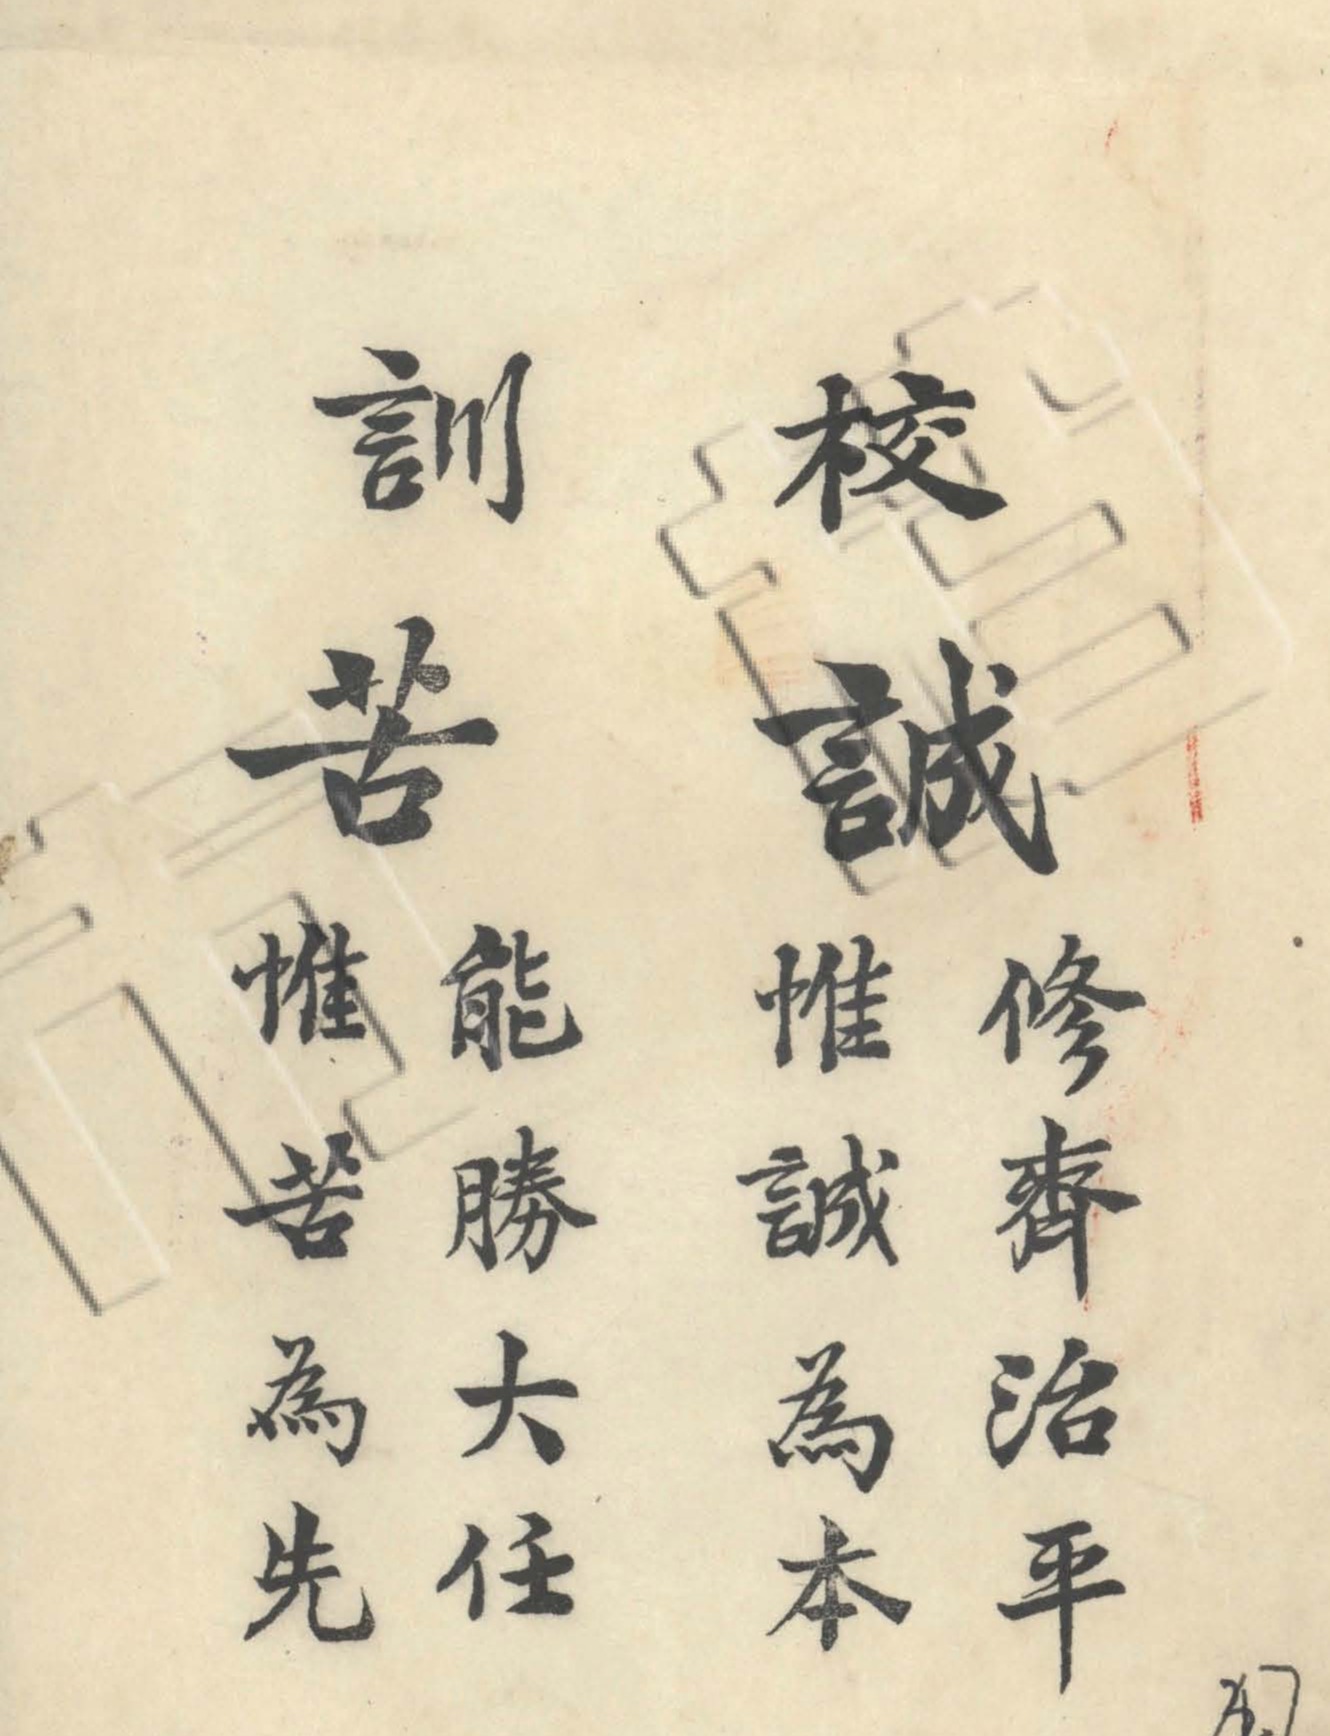 校訓
誠
修齊治平
惟誠為本
苦
能勝大任
惟苦為先